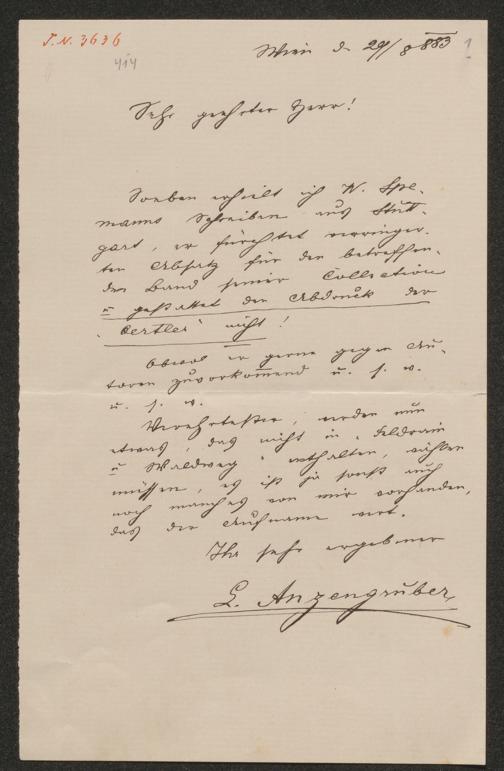 J. N. 3636
414
1
Wien d. 29/8 883
Sehr geehrter Herr!
Soeben erhielt ich W. Spe-
manns Schreiben aus Stutt-
gart, er fürchtet verringer-
ten Absatz für den betreffen-
den Band seiner Collection
u gestattet den Abdruck der
"Oertler" nicht!
Obwol er gerne gegen Au-
toren zuvorkom̅end u. s. w.
u. s. w.
Verehrtester, werden nun
etwas, das nicht in "Feldrain
u Waldweg" enthalten, wählen
müssen, es ist ja sonst auch
noch manches von mir vorhanden,
das der Aufname wert.
Ihr sehr ergebener
L. Anzengruber